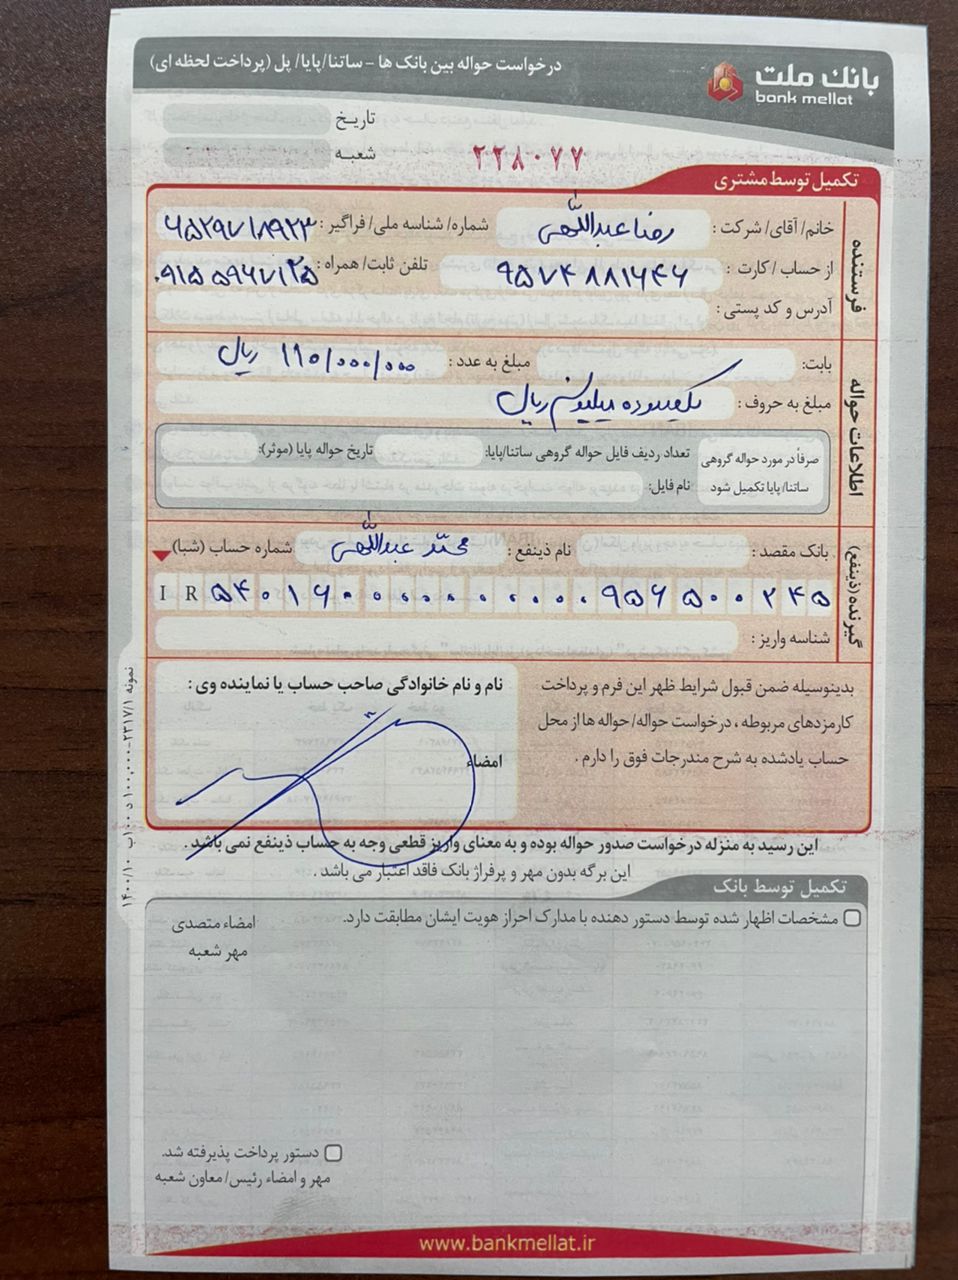 بانک ملت
bank mellat
درخواست حواله بین بانک ها - ساتنا/پایا/ پل (پرداخت لحظه ای)
تاریخ
شعبه
۲۲۸۰۷۷
تکمیل توسط مشتری
فرستنده
خانم/ آقای/ شرکت : رضا عبداللهی شماره/ شناسه ملی/ فراگیر : ۶۵۲۹۷۱۸۹۲۳
از حساب/ کارت : ۹۵۷۴۸۸۱۶۴۶ تلفن ثابت/ همراه : ۰۹۱۵۵۹۶۷۱۲۵
آدرس و کد پستی :
اطلاعات حواله
بابت: مبلغ به عدد : ۱۱۰/۰۰۰/۰۰۰ ریال
مبلغ به حروف : یکصدوده میلیون ریال
صرفاً در مورد حواله گروهی ساتنا/پایا تکمیل شود
تعداد ردیف فایل حواله گروهی ساتنا/پایا: تاریخ حواله پایا (موثر):
نام فایل:
گیرنده (ذینفع)
بانک مقصد : نام ذینفع : محمد عبداللهی شماره حساب (شبا)
IR ۵۴۰۱۶۰۰۰۰۰۰۰۰۰۰۰۹۵۶۵۰۰۲۴۵
شناسه واریز :
بدینوسیله ضمن قبول شرایط ظهر این فرم و پرداخت
کارمزدهای مربوطه ، درخواست حواله/ حواله ها از محل
حساب یادشده به شرح مندرجات فوق را دارم .
نام و نام خانوادگی صاحب حساب یا نماینده وی :
امضاء
این رسید به منزله درخواست صدور حواله بوده و به معنای واریز قطعی وجه به حساب ذینفع نمی باشد .
این برگه بدون مهر و پرفراژ بانک فاقد اعتبار می باشد .
تکمیل توسط بانک
مشخصات اظهار شده توسط دستور دهنده با مدارک احراز هویت ایشان مطابقت دارد.
امضاء متصدی
مهر شعبه
دستور پرداخت پذیرفته شد.
مهر و امضاء رئیس/ معاون شعبه
www.bankmellat.ir